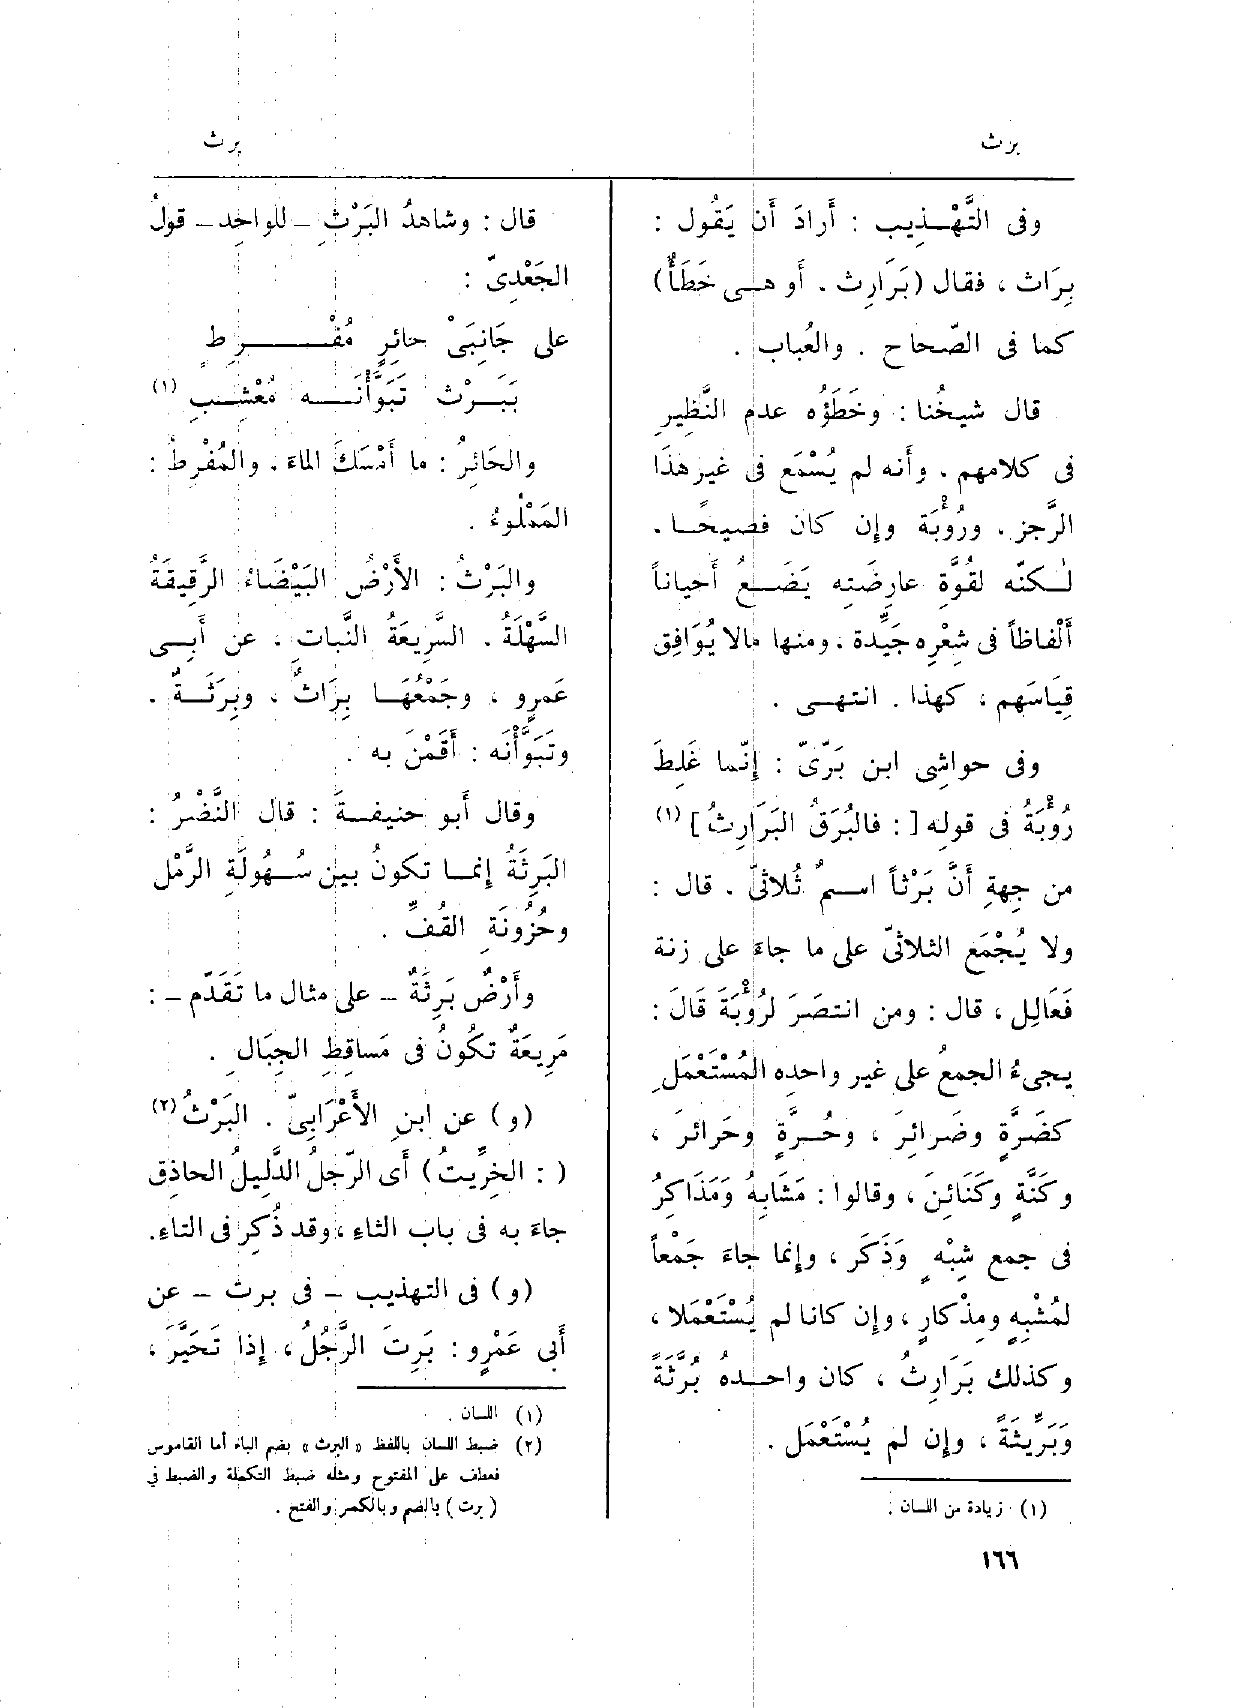 برث
برث
وفى التَّهْـذِيب : أَرادَ أَن يَقُول :
بِرَاث ، فقال (بَرَارِث . أو هـى خَطَأٌ)
كما فى الصّحاح . والعُباب .
قال شيخُنا : وخَطَؤُه عدم النَّظِير
فى كلامهم . وأنه لم يُسْمَع فى غير هذَا
الرَّجز . ورُؤْبَة وإن كان فصيحًـا .
لٰـكنّه لقُوَّةِ عارِضَتِه يَضَـعُ أحياناً
أَلْفاظاً فى شِعْرِه جَيِّدة . ومنها مالا يُوَافِق
قِيَاسَهم ، كهذا . انتهـى .
وفى حواشى ابن بَرّىّ : إِنّما غَلِطَ
رُؤْبَةُ فى قولِه [ : فالبُرَقُ البَرَارِثُ ] (١)
من جِهةِ أَنَّ بَرْثاً اسـمٌ ثُلاثىّ . قال :
ولا يُجْمَع الثلاثىّ على ما جاءَ على زنة
فَعَالِل ، قال : ومن انتصَرَ لرُؤْبَةَ قَالَ :
يجىءُ الجمعُ على غير واحدِه المُسْتَعْمَلِ
كضَرَّةٍ وضَرائِرَ ، وحُـرَّةٍ وحَرائرَ ،
وكَنَّةٍ وكَنَائِنَ ، وقالوا : مَشَابِهُ وَمَذَاكِرُ
فى جمع شِبْهٍ وَذَكَر ، وإنما جاءَ جَمْعاً
لمُشْبِهٍ ومِذْكارٍ ، وإن كانا لم يُسْتَعْمَلا ،
وكذلك بَرَارِثُ ، كان واحـدهُ بُرَّثَةً
وَبَرِّيثَةً ، وإن لم يُسْتَعْمَل .
(١) زيادة من اللسان .
قال : وشاهدُ البَرْثِ – للواحِد – قولُ
الجَعْدِىّ :
على جَانِبَىْ حائِرٍ مُفْـــرِطٍ
بَبَـرْث تَبَوَّأْنَـــه مُعْشِـبِ (١)
والحَائِرُ : ما أَمْسَكَ الماءَ . والمُفْرِطُ :
المَمْلُوءُ .
والبَرْثُ : الأَرْضُ البَيْضَاءُ الرَّقِيقَةُ
السَّهْلَةُ . السَّرِيعَةُ النَّباتِ . عن أَبـى
عَمرٍو ، وجَمْعُهَـا بِرَاثٌ ، وبِرَثَـةٌ .
وتَبَوَّأْنَه : أَقَمْنَ به .
وقال أَبو حنيفـةَ : قال النَّضْرُ :
البَرِثَةُ إِنمـا تكونُ بين سُـهُولَةِ الرَّمْل
وحُزُونَةِ القُفِّ .
وأَرْضٌ بَرِثَةٌ – على مثال ما تَقَدّم – :
مَرِيعَةٌ تكُونُ فى مَساقِطِ الجِبَالِ .
(و) عن ابنِ الأَعْرَابِىّ . البَرْثُ (٢)
( : الخِرِّيتُ) أَى الرّجلُ الدَّلِيلُ الحاذِق
جاءَ به فى باب الثاءِ ، وقد ذُكِر فى التاءِ.
(و) فى التهذيب – فى برث – عن
أَبى عَمْرٍو : بَرِتَ الرَّجُلُ ، إِذا تَحَيَّرَ ،
(١) اللسان .
(٢) ضبط اللسان باللفظ « البرث » بضم الباء أما القاموس
فعطف على المفتوح ومثله ضبط التكملة والضبط فى
( برت ) بالضم وبالكسر والفتح .
١٦٦